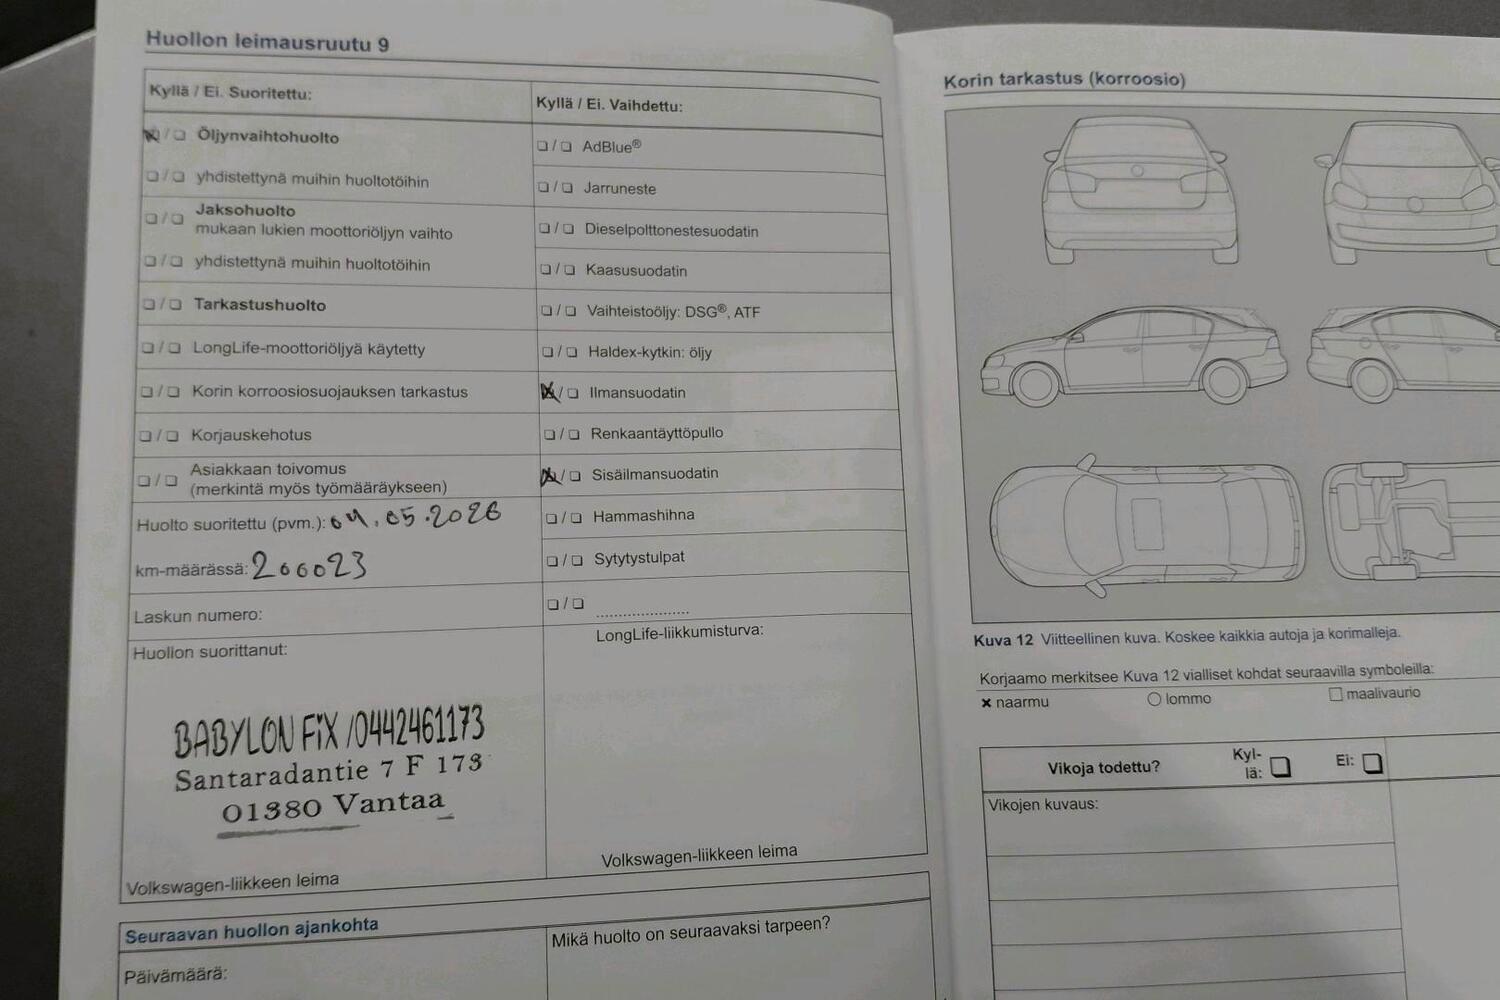 Huollon leimausruutu 9
Kyllä / Ei. Suoritettu:
❏ / ❏ Öljynvaihtohuolto
❏ / ❏ yhdistettynä muihin huoltotöihin
❏ / ❏ Jaksohuolto
mukaan lukien moottoriöljyn vaihto
❏ / ❏ yhdistettynä muihin huoltotöihin
❏ / ❏ Tarkastushuolto
❏ / ❏ LongLife-moottoriöljyä käytetty
❏ / ❏ Korin korroosiosuojauksen tarkastus
❏ / ❏ Korjauskehotus
❏ / ❏ Asiakkaan toivomus
(merkintä myös työmääräykseen)
Huolto suoritettu (pvm.): 04.05.2026
km-määrässä: 200023
Laskun numero:
Huollon suorittanut:
BABYLON FiX /0442461173
Santaradantie 7 F 173
01380 Vantaa
Volkswagen-liikkeen leima
Kyllä / Ei. Vaihdettu:
❏ / ❏ AdBlue®
❏ / ❏ Jarruneste
❏ / ❏ Dieselpolttonestesuodatin
❏ / ❏ Kaasusuodatin
❏ / ❏ Vaihteistoöljy: DSG®, ATF
❏ / ❏ Haldex-kytkin: öljy
❏ / ❏ Ilmansuodatin
❏ / ❏ Renkaantäyttöpullo
❏ / ❏ Sisäilmansuodatin
❏ / ❏ Hammashihna
❏ / ❏ Sytytystulpat
❏ / ❏ ....................
LongLife-liikkumisturva:
Volkswagen-liikkeen leima
Seuraavan huollon ajankohta
Päivämäärä:
Mikä huolto on seuraavaksi tarpeen?
Korin tarkastus (korroosio)
Kuva 12 Viitteellinen kuva. Koskee kaikkia autoja ja korimalleja.
Korjaamo merkitsee Kuva 12 vialliset kohdat seuraavilla symboleilla:
× naarmu ○ lommo □ maalivaurio
Vikoja todettu? Kyl-
lä: ❏ Ei: ❏
Vikojen kuvaus: